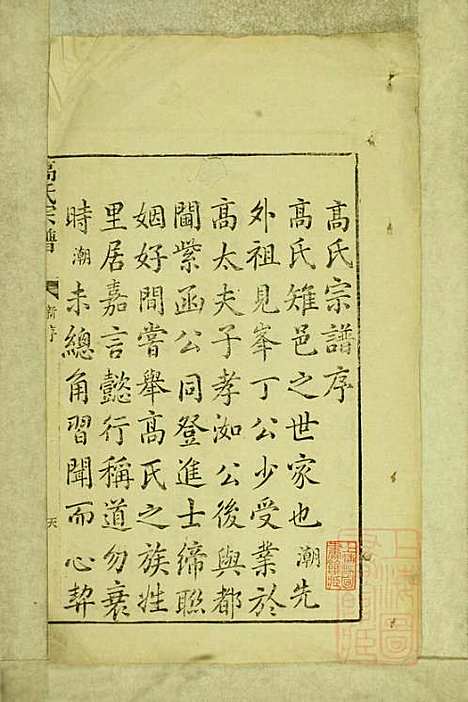 高氏宗譜序
高氏雉邑之世家也潮先
外祖見峯丁公少受業於
高太夫子孝洳公後與都
閫紫函公同登進士締聯
姻好間嘗舉高氏之族姓
里居嘉言懿行稱道勿衰
時潮未總角習聞而心契
高氏宗譜
新序
天
上海圖